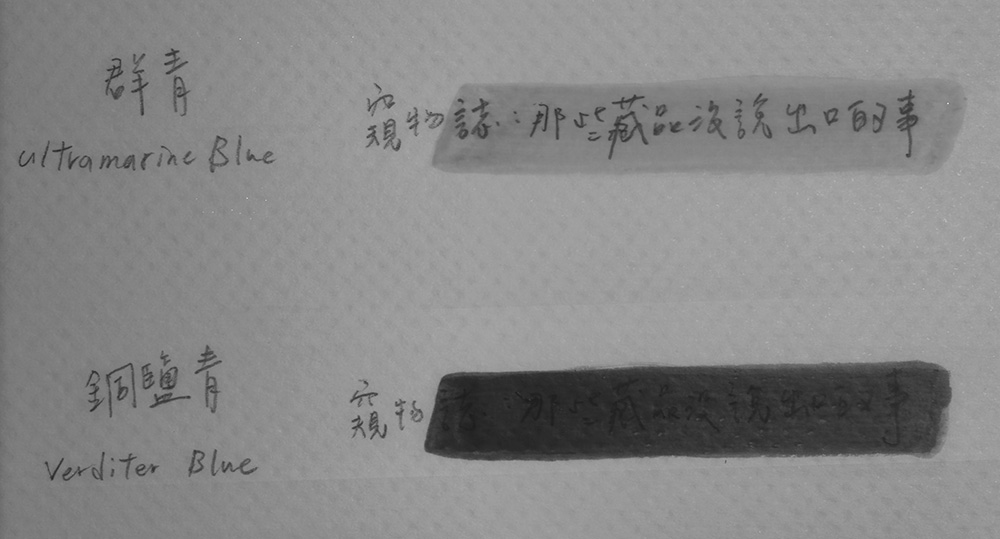 群青
ultramarine Blue
窺物誌：那些藏品沒說出口的事
銅鹽青
Verditer Blue
窺物誌：那些藏品沒說出口的事